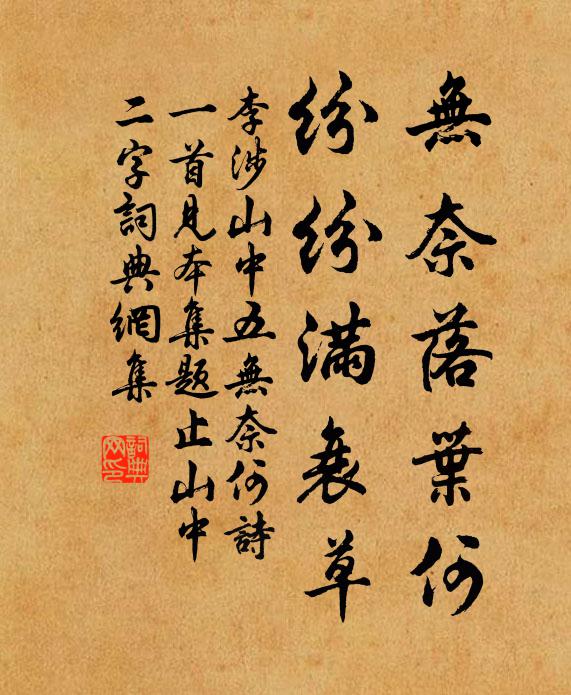 無奈落葉何
紛紛滿衰草
李涉山中五無奈何詩
一首見本集題止山中
二字詞典網集
詞典网印